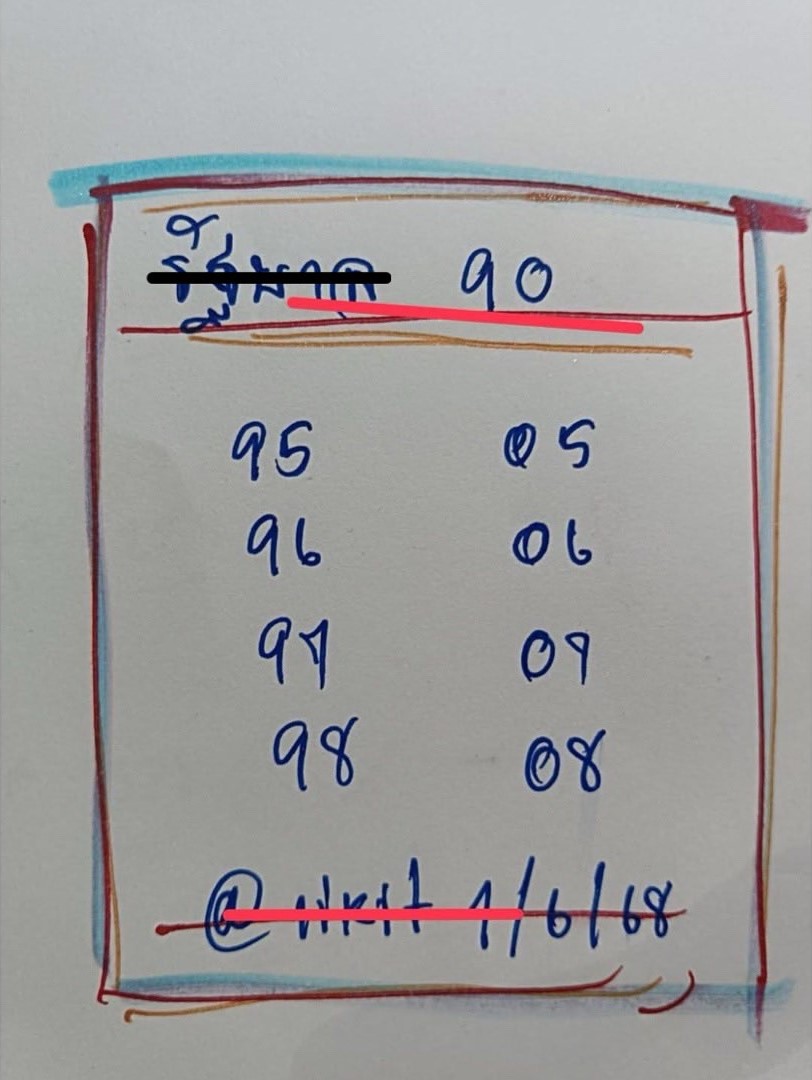 รัฐบาล 90
95 05
96 06
97 07
98 08
@ 1/6/68